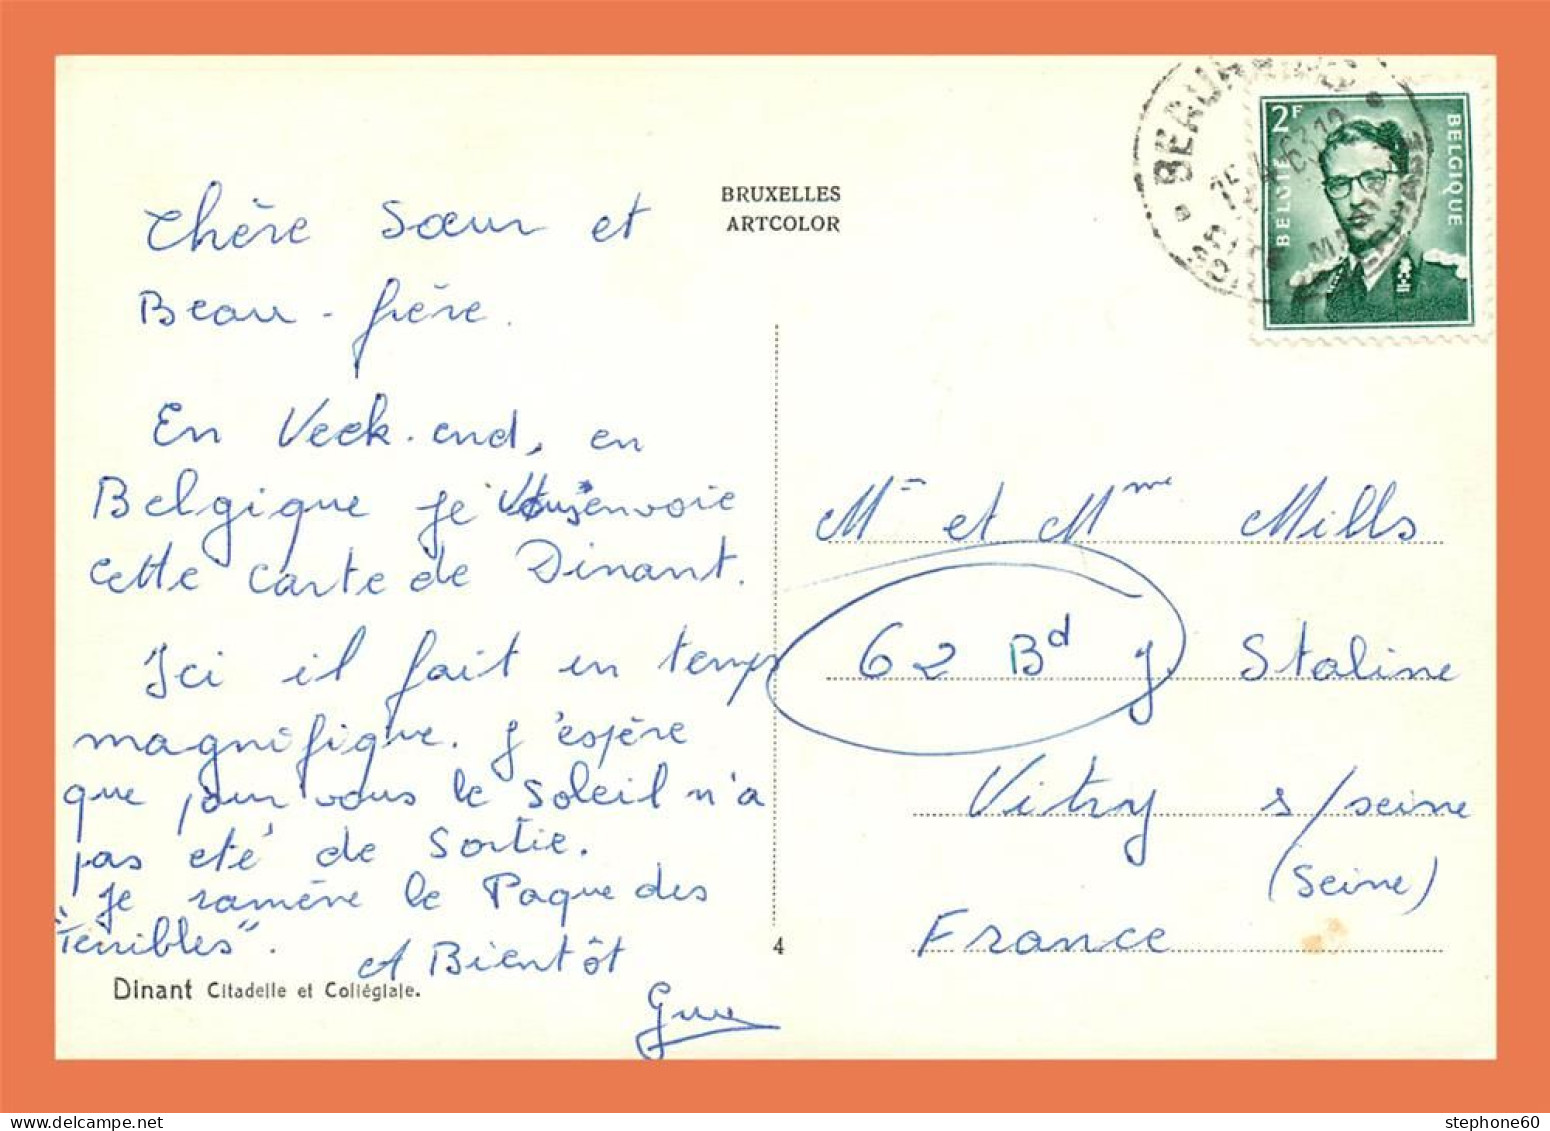 Chère Sœur et
Beau-frère.
En Veek-end, en
Belgique je vous envoie
cette carte de Dinant.
Ici il fait un temps
magnifique. J'espère
que pour vous le Soleil n'a
pas été de Sortie.
Je ramène le Paque des
"Terribles".
A Bientôt
Dinant Citadelle et Collégiale.
BRUXELLES
ARTCOLOR
4
2F
BELGIE
BELGIQUE
Mr et Mme Mills
62 Bd J Staline
Vitry s/seine
(Seine)
France
stephone60